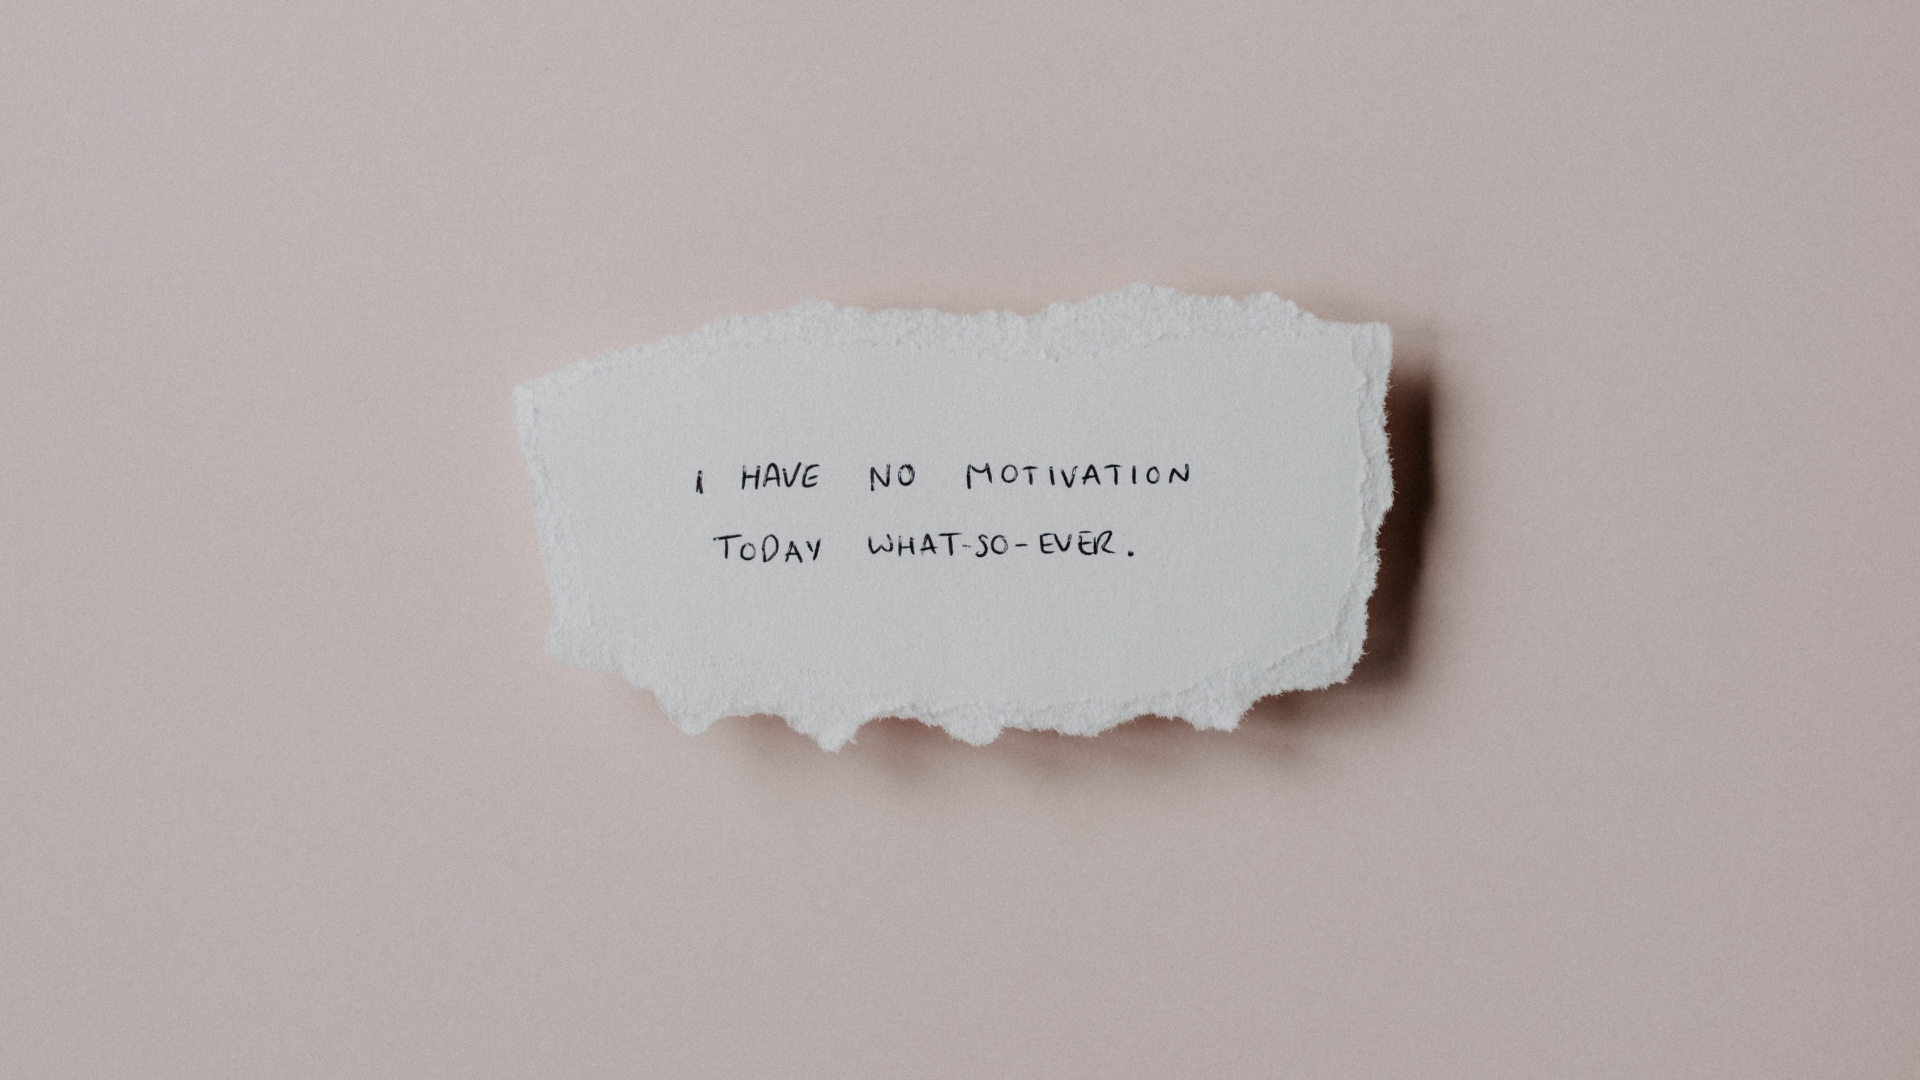 I HAVE NO MOTIVATION
TODAY WHAT-SO-EVER.